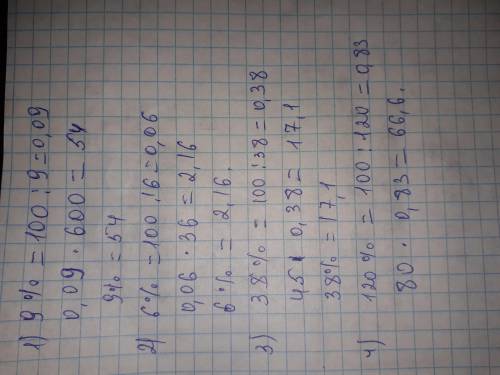 1) 9% = 100 : 9 = 0,09
0,09 · 600 = 54
9% = 54
2) 6% = 100 : 6 = 0,06
0,06 · 36 = 2,16
6% = 2,16.
3) 38% = 100 : 38 = 0,38
45 · 0,38 = 17,1
38% = 17,1
4) 120% = 100 : 120 = 0,83
80 · 0,83 = 66,6.